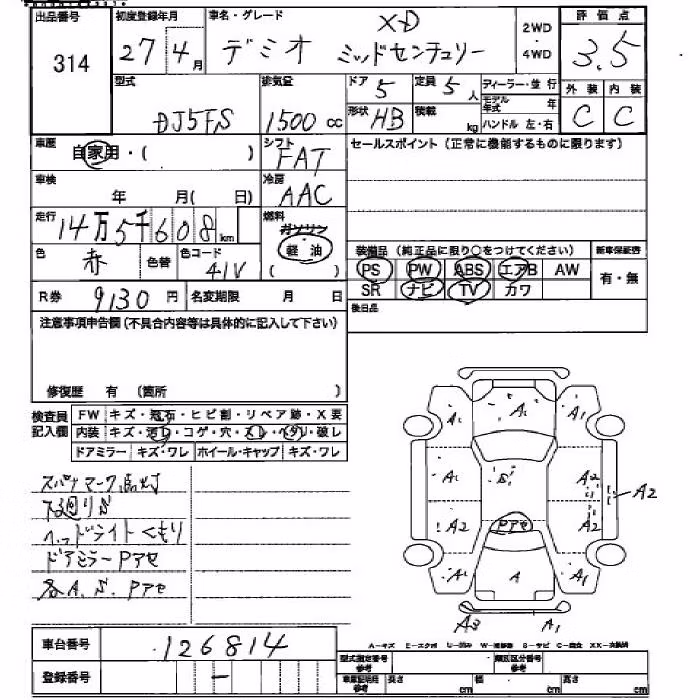 出品番号
314
初度登録年月
27 / 4月
車名・グレード
デミオ XD ミッドセンチュリー
2WD
4WD
評価点
3.5
外装 内装
C C
型式
DJ5FS
排気量
1500 cc
ドア 5
定員 5人
形状 HB
積載 kg
ディーラー・並行
モデル年式 年
ハンドル 左・右
車歴
自家用・( )
シフト
FAT
セールスポイント(正常に機能するものに限ります)
車検
年 月( 日)
冷房
AAC
走行
14万5千608km
燃料
ガソリン
軽油
( )
色 赤
色替
色コード 41V
装備品(純正品に限り○をつけてください)
新車保証書
PS PW ABS エアB AW
有・無
SR ナビ TV カワ
R券 9130円
名変期限 月 日
後日品
注意事項申告欄(不具合内容等は具体的に記入して下さい)
修復歴 有 (箇所 )
検査員記入欄
FW キズ・飛石・ヒビ割・リペア跡・X要
内装 キズ・汚れ・コゲ・穴・スレ・ヘタリ・破レ
ドアミラー キズ・ワレ ホイール・キャップ キズ・ワレ
下廻りS
ヘッドライトくもり
ドアミラーPアセ
各A.S.Pアセ
A A A1
A1 S A2
A2 A2 A2
Pアセ
A1 A A1
A3 A1
車台番号
126814
登録番号
-
A-キズ E-エクボ U-凹み W-補修跡 S-サビ C-腐食 XX-交換済
型式指定番号 参考
類別区分番号 参考
車庫証明用 参考
長さ cm
幅 cm
高さ cm